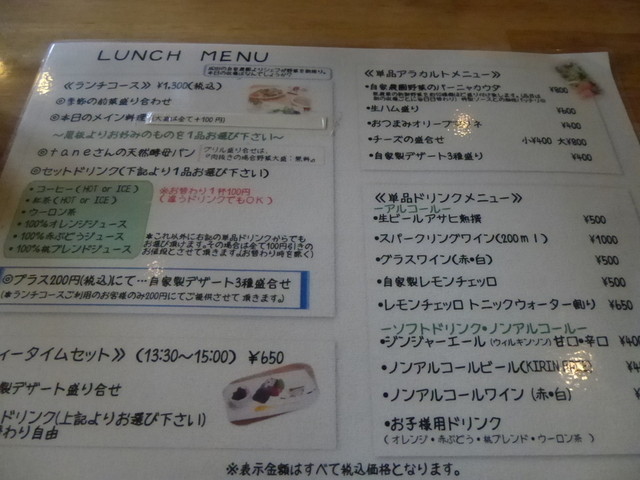 LUNCH MENU
≪ランチコース≫ ¥1,300(税込)
◎季節の前菜盛り合わせ
◎本日のメイン料理(大盛は全て+100円)
～黒板よりお好みのものを1品お選び下さい～
◎taneさんの天然酵母パン
◎セットドリンク(下記より1品お選び下さい)
・コーヒー(HOT or ICE)
・紅茶(HOT or ICE)
・ウーロン茶
・100%オレンジジュース
・100%赤ぶどうジュース
・100%桃ブレンドジュース
※お替わり1杯100円
(違うドリンクでもOK)
※これ以外に右記の単品ドリンクからでも
お選び頂けます。その場合は全て100円引きの
お値段とさせて頂きます。(お替わり時を除く)
◎プラス200円(税込)にて…自家製デザート3種盛合せ
(※ランチコースご利用のお客様のみ200円にてご提供させて頂きます。)
ィータイムセット≫ (13:30～15:00) ¥650
製デザート盛り合せ
ドリンク(上記よりお選び下さい)
わり自由
≪単品アラカルトメニュー≫
・自家農園野菜のバーニャカウダ ¥800
・生ハム盛り ¥600
・おつまみオリーブ ¥400
・チーズの盛合せ 小¥400 大¥800
・自家製デザート3種盛り ¥400
≪単品ドリンクメニュー≫
ーアルコールー
・生ビールアサヒ熟撰 ¥500
・スパークリングワイン(200ml) ¥1000
・グラスワイン(赤・白) ¥500
・自家製レモンチェッロ ¥500
・レモンチェッロ トニックウォーター割り ¥650
ーソフトドリンク・ノンアルコールー
・ジンジャーエール(ウィルキンソン)甘口・辛口 ¥400
・ノンアルコールビール(KIRIN
・ノンアルコールワイン (赤・白)
・お子様用ドリンク
(オレンジ・赤ぶどう・桃ブレンド・ウーロン茶)
※表示金額はすべて税込価格となります。